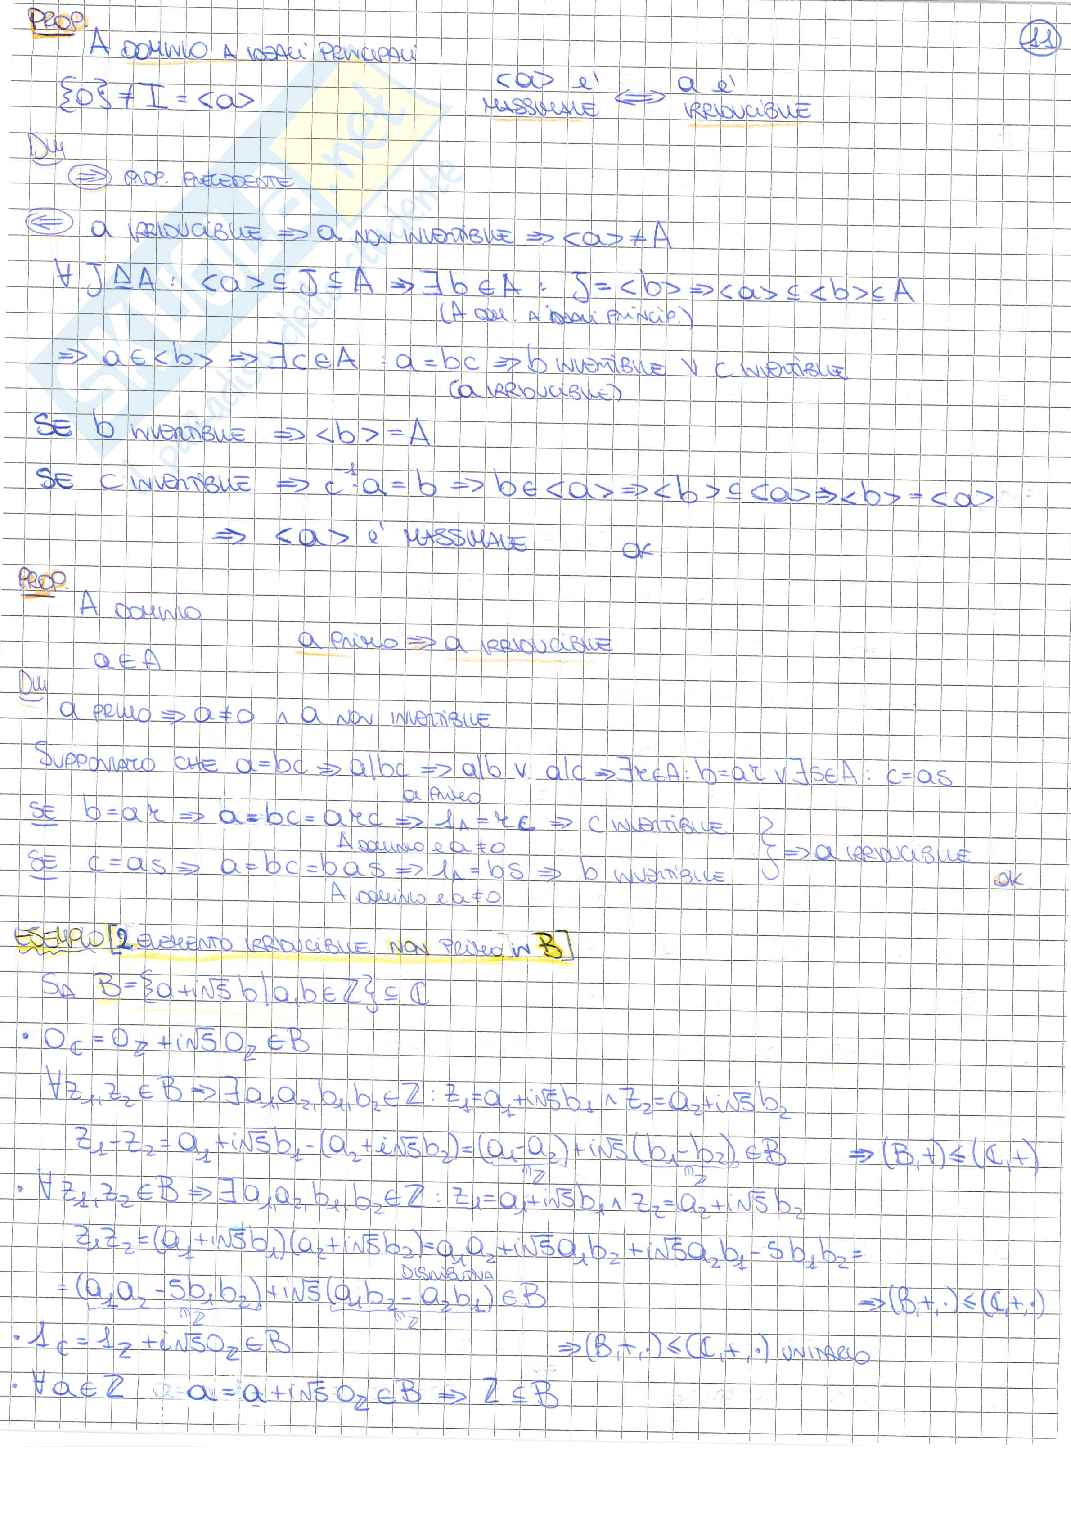 PROP.
11
A DOMINIO A IDEALI PRINCIPALI
{0} ≠ I = <a>
<a> è MASSIMALE ⟺ a è IRRIDUCIBILE
Dim
⇒ PROP. PRECEDENTE
⇐ a IRRIDUCIBILE ⇒ a NON INVERTIBILE ⇒ <a> ≠ A
∀ J ⊴ A : <a> ⊆ J ⊆ A ⇒ ∃ b ∈ A : J = <b> ⇒ <a> ⊆ <b> ⊆ A
(A DOM. A IDEALI PRINCIP.)
⇒ a ∈ <b> ⇒ ∃ c ∈ A : a = bc ⇒ b INVERTIBILE ∨ c INVERTIBILE
(a IRRIDUCIBILE)
SE b INVERTIBILE ⇒ <b> = A
SE c INVERTIBILE ⇒ c⁻¹·a = b ⇒ b ∈ <a> ⇒ <b> ⊆ <a> ⇒ <b> = <a>
⇒ <a> è MASSIMALE OK
PROP.
A DOMINIO
a PRIMO ⇒ a IRRIDUCIBILE
a ∈ A
Dim
a PRIMO ⇒ a ≠ 0 ∧ a NON INVERTIBILE
SUPPONIAMO CHE a = bc ⇒ a|bc ⇒ a|b ∨ a|c ⇒ ∃ r ∈ A : b = ar ∨ ∃ s ∈ A : c = as
a PRIMO
SE b = ar ⇒ a = bc = arc ⇒ 1_A = rc ⇒ c INVERTIBILE
A DOMINIO E a ≠ 0
} ⇒ a IRRIDUCIBILE
SE c = as ⇒ a = bc = bas ⇒ 1_A = bs ⇒ b INVERTIBILE OK
A DOMINIO E a ≠ 0
ESEMPIO [2 ELEMENTO IRRIDUCIBILE NON PRIMO IN B]
SIA B = {a + i√5 b | a, b ∈ ℤ} ⊆ ℂ
• 0_ℂ = 0_ℤ + i√5 0_ℤ ∈ B
∀ z₁, z₂ ∈ B ⇒ ∃ a₁, a₂, b₁, b₂ ∈ ℤ : z₁ = a₁ + i√5 b₁ ∧ z₂ = a₂ + i√5 b₂
z₁ - z₂ = a₁ + i√5 b₁ - (a₂ + i√5 b₂) = (a₁ - a₂) + i√5 (b₁ - b₂) ∈ B ⇒ (B, +) ≤ (ℂ, +)
∈ℤ ∈ℤ
• ∀ z₁, z₂ ∈ B ⇒ ∃ a₁, a₂, b₁, b₂ ∈ ℤ : z₁ = a₁ + i√5 b₁ ∧ z₂ = a₂ + i√5 b₂
z₁z₂ = (a₁ + i√5 b₁)(a₂ + i√5 b₂) = a₁a₂ + i√5 a₁b₂ + i√5 a₂b₁ - 5b₁b₂ =
DISTRIBUTIVA
= (a₁a₂ - 5b₁b₂) + i√5 (a₁b₂ - a₂b₁) ∈ B ⇒ (B, +, ·) ≤ (ℂ, +, ·)
∈ℤ ∈ℤ
• 1_ℂ = 1_ℤ + i√5 0_ℤ ∈ B ⇒ (B, +, ·) ≤ (ℂ, +, ·) UNITARIO
• ∀ a ∈ ℤ a = a + i√5 0_ℤ ∈ B ⇒ ℤ ⊆ B